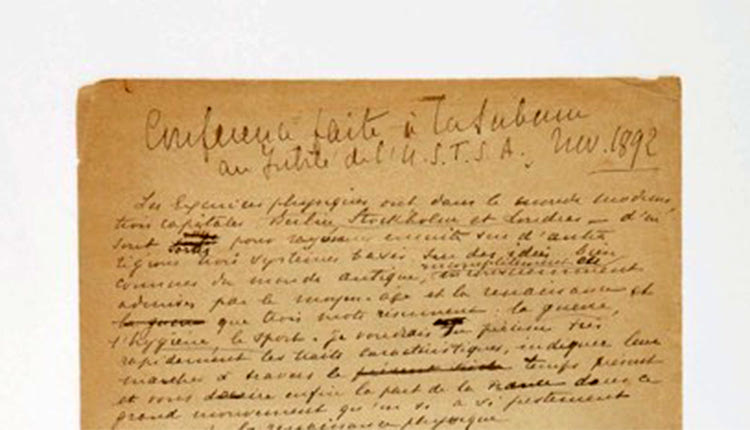 Conférence faite à la Sorbonne
au Jubilé de l'U.S.F.S.A. Nov. 1892
Les Exercices physiques ont dans le monde moderne
trois capitales : Berlin, Stockholm et Londres — d'où
sont sortis pour rayonner ensuite sur d'autres
régions trois systèmes basés sur des idées bien
connues du monde antique, incomplètement
admises par le moyen-âge et la renaissance et
la guerre que trois mots résument : la guerre,
l'hygiène, le sport. Je voudrais en préciser très
rapidement les traits caractéristiques, indiquer leur
marche à travers le présent siècle temps présent
et vous dire enfin la part de la France dans ce
grand mouvement qu'on a si justement
la renaissance physique